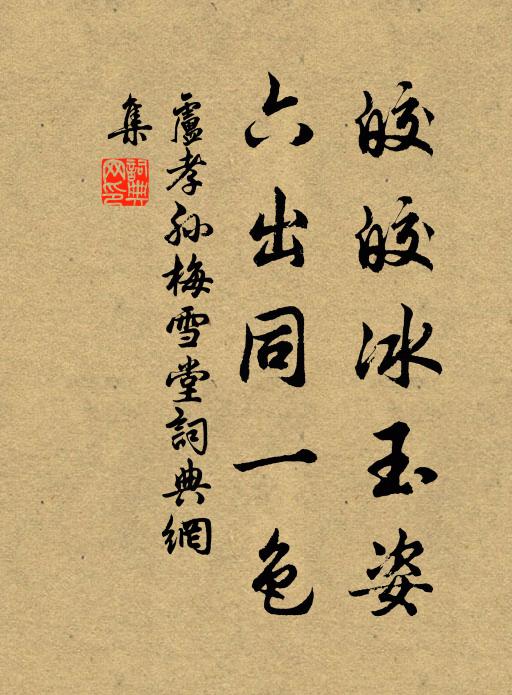 皎皎冰玉姿
六出同一色
盧孝孙梅雪堂詞典網
集
詞典网印